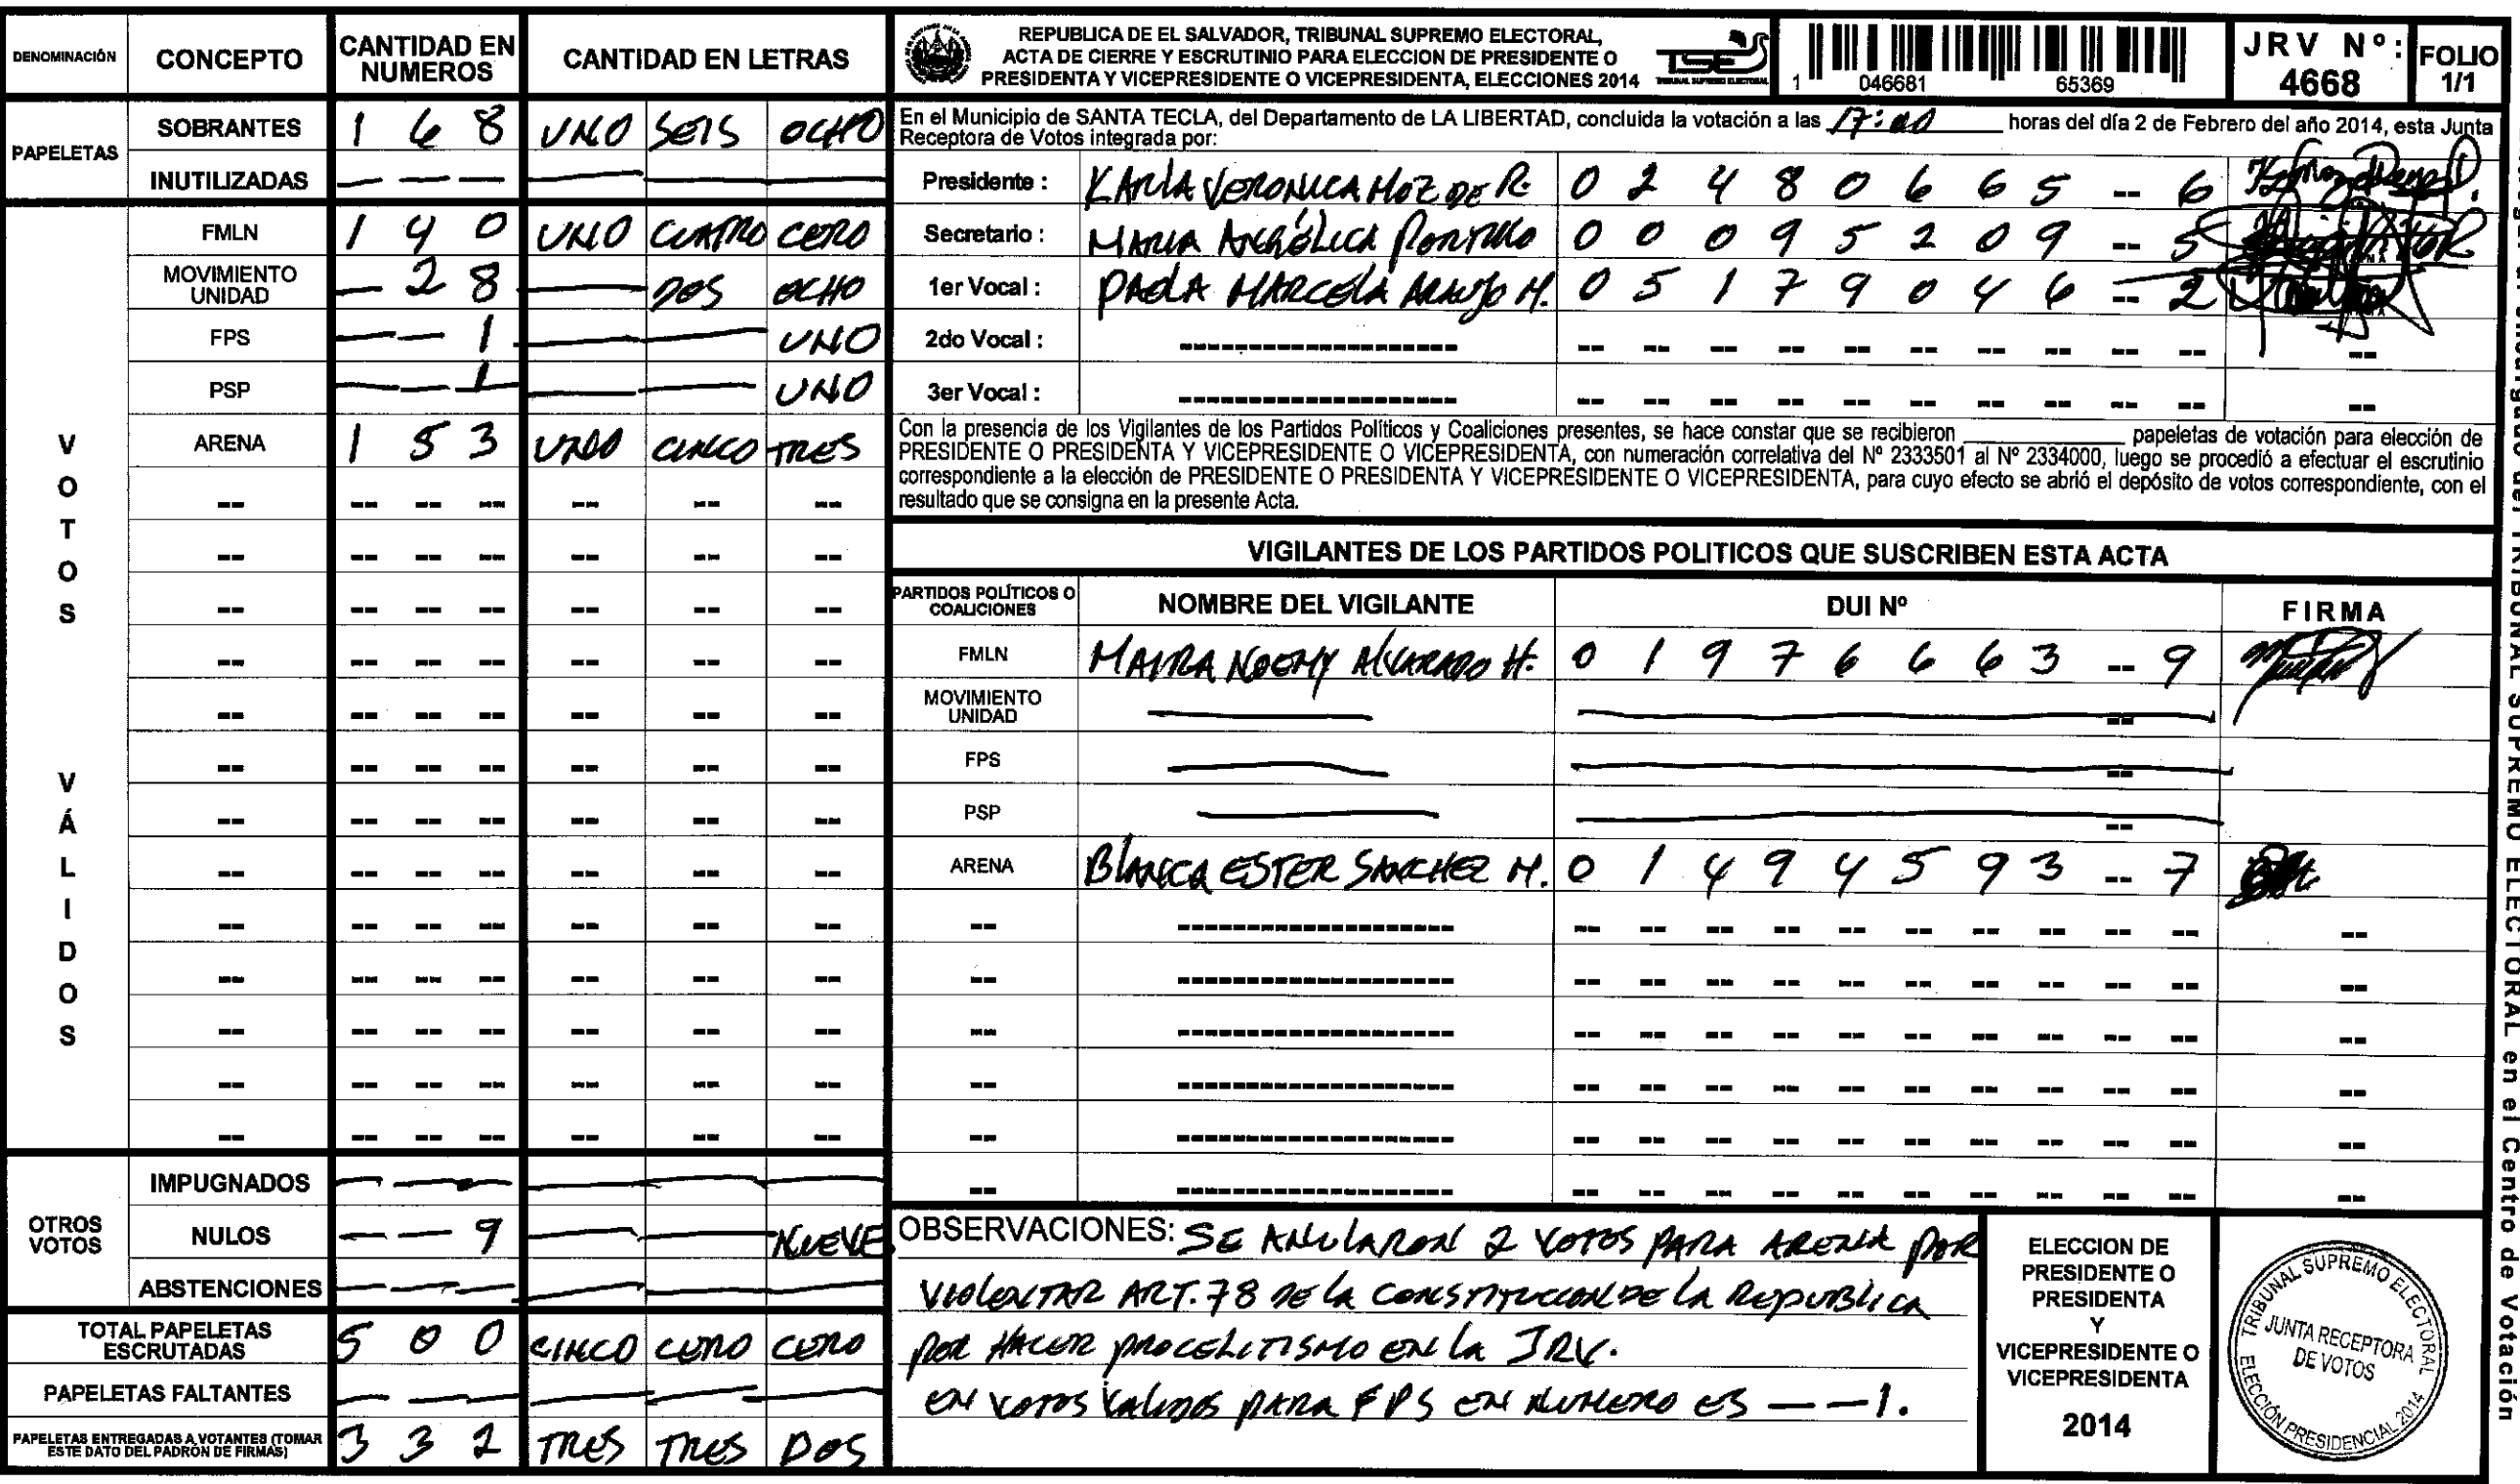 DENOMINACIÓN CONCEPTO CANTIDAD EN NUMEROS CANTIDAD EN LETRAS
PAPELETAS
SOBRANTES 1 6 8 UNO SEIS OCHO
INUTILIZADAS — — — — — —
VOTOS VÁLIDOS
FMLN 1 4 0 UNO CUATRO CERO
MOVIMIENTO UNIDAD — 2 8 — DOS OCHO
FPS — — 1 — — UNO
PSP — — 1 — — UNO
ARENA 1 5 3 UNO CINCO TRES
OTROS VOTOS
IMPUGNADOS — — — — — —
NULOS — — 9 — — NUEVE
ABSTENCIONES — — — — — —
TOTAL PAPELETAS ESCRUTADAS 5 0 0 CINCO CERO CERO
PAPELETAS FALTANTES — — — — — —
PAPELETAS ENTREGADAS A VOTANTES (TOMAR ESTE DATO DEL PADRÓN DE FIRMAS) 3 3 2 TRES TRES DOS
REPUBLICA DE EL SALVADOR, TRIBUNAL SUPREMO ELECTORAL,
ACTA DE CIERRE Y ESCRUTINIO PARA ELECCION DE PRESIDENTE O
PRESIDENTA Y VICEPRESIDENTE O VICEPRESIDENTA, ELECCIONES 2014
TSE
TRIBUNAL SUPREMO ELECTORAL
1 046681 65369
JRV Nº: 4668
FOLIO 1/1
En el Municipio de SANTA TECLA, del Departamento de LA LIBERTAD, concluida la votación a las 17:00 horas del día 2 de Febrero del año 2014, esta Junta
Receptora de Votos integrada por:
Presidente : KARLA VERONICA MOZ DE R. 0 2 4 8 0 6 6 5 -- 6
Secretario : MARIA ANGÉLICA PORTILLO 0 0 0 9 5 2 0 9 -- 5
1er Vocal : PAOLA MARCELA ARAUJO M. 0 5 1 7 9 0 4 6 -- 2
2do Vocal :
3er Vocal :
Con la presencia de los Vigilantes de los Partidos Políticos y Coaliciones presentes, se hace constar que se recibieron ________ papeletas de votación para elección de
PRESIDENTE O PRESIDENTA Y VICEPRESIDENTE O VICEPRESIDENTA, con numeración correlativa del Nº 2333501 al Nº 2334000, luego se procedió a efectuar el escrutinio
correspondiente a la elección de PRESIDENTE O PRESIDENTA Y VICEPRESIDENTE O VICEPRESIDENTA, para cuyo efecto se abrió el depósito de votos correspondiente, con el
resultado que se consigna en la presente Acta.
VIGILANTES DE LOS PARTIDOS POLITICOS QUE SUSCRIBEN ESTA ACTA
PARTIDOS POLÍTICOS O COALICIONES NOMBRE DEL VIGILANTE DUI Nº FIRMA
FMLN MAIRA NOEMY ALVARADO H. 0 1 9 7 6 6 6 3 -- 9
MOVIMIENTO UNIDAD
FPS
PSP
ARENA BLANCA ESTER SANCHEZ M. 0 1 4 9 4 5 9 3 -- 7
OBSERVACIONES: SE ANULARON 2 VOTOS PARA ARENA POR
VIOLENTAR ART. 78 DE LA CONSTITUCION DE LA REPUBLICA
POR HACER PROCELITISMO EN LA JRV.
EN VOTOS VALIDOS PARA FPS EN NUMERO ES — — 1.
ELECCION DE
PRESIDENTE O
PRESIDENTA
Y
VICEPRESIDENTE O
VICEPRESIDENTA
2014
TRIBUNAL SUPREMO ELECTORAL
JUNTA RECEPTORA
DE VOTOS
ELECCIÓN PRESIDENCIAL 2014
del TRIBUNAL SUPREMO ELECTORAL en el Centro de Votación